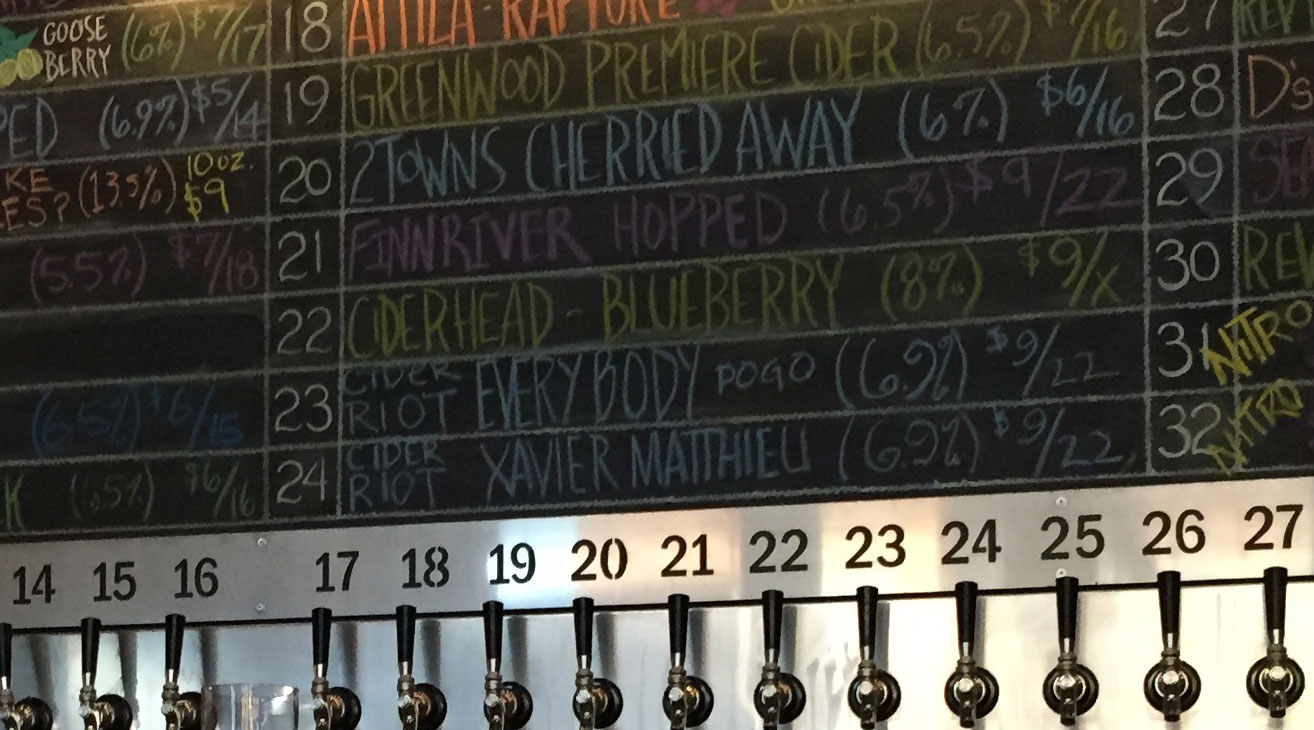 GOOSE BERRY (6%) $7/17
PED (6.9%) $5/14
KE ES? (13.5%) 10 OZ. $9
(5.5%) $7/18
(6.5%) $6/15
K (6.5%) $6/16
18 ATTILA - RAPTURE $7/17
19 GREENWOOD PREMIERE CIDER (6.5%) $7/16
20 2TOWNS CHERRIED AWAY (6%) $6/16
21 FINNRIVER HOPPED (6.5%) $9/22
22 CIDERHEAD - BLUEBERRY (8%) $9/X
23 CIDER RIOT EVERYBODY POGO (6.9%) $9/22
24 CIDER RIOT XAVIER MATTHIEU (6.9%) $9/22
27 REV
28 D's
29 SEA
30 REV
31 NITRO
32 NITRO
14 15 16 17 18 19 20 21 22 23 24 25 26 27